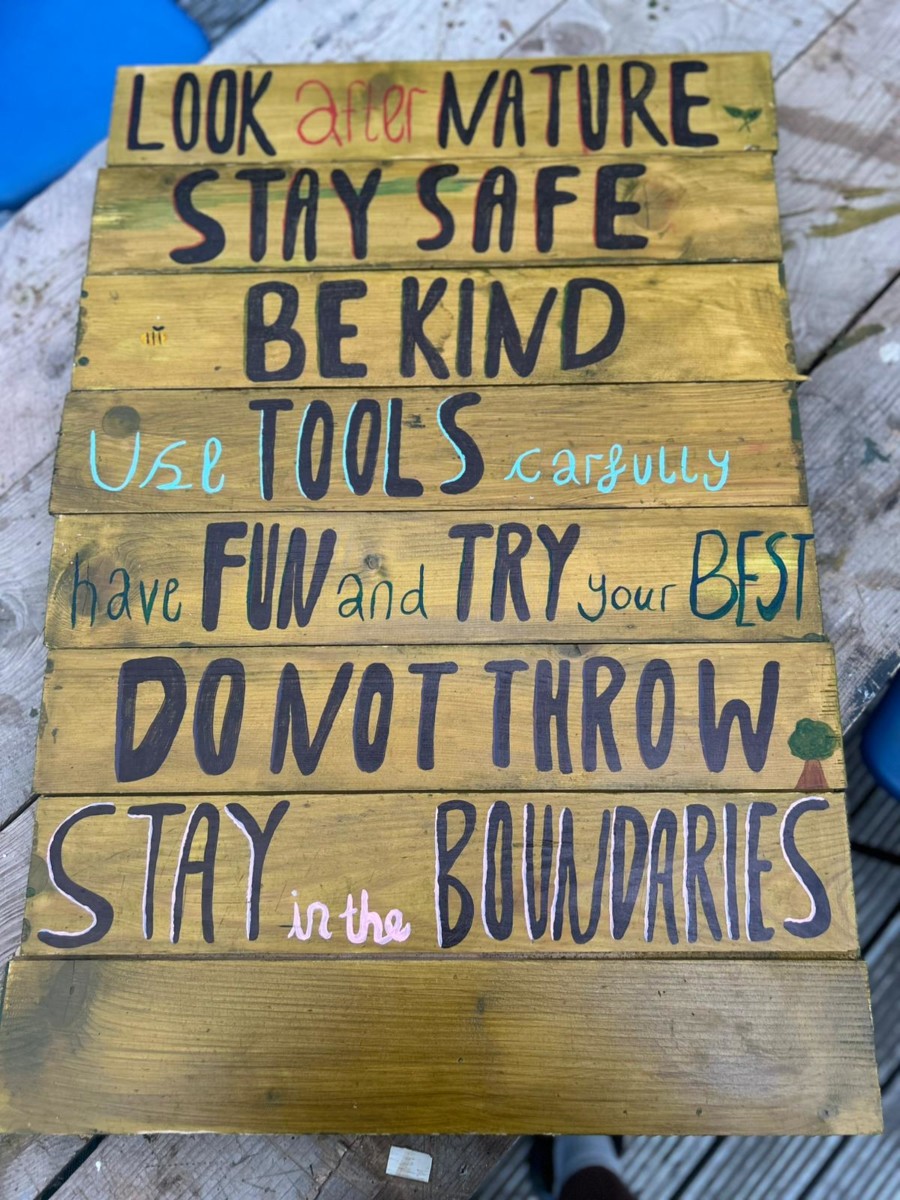 LOOK after NATURE
STAY SAFE
BE KIND
Use TOOLS carfully
have FUN and TRY your BEST
DO NOT THROW
STAY in the BOUNDARIES